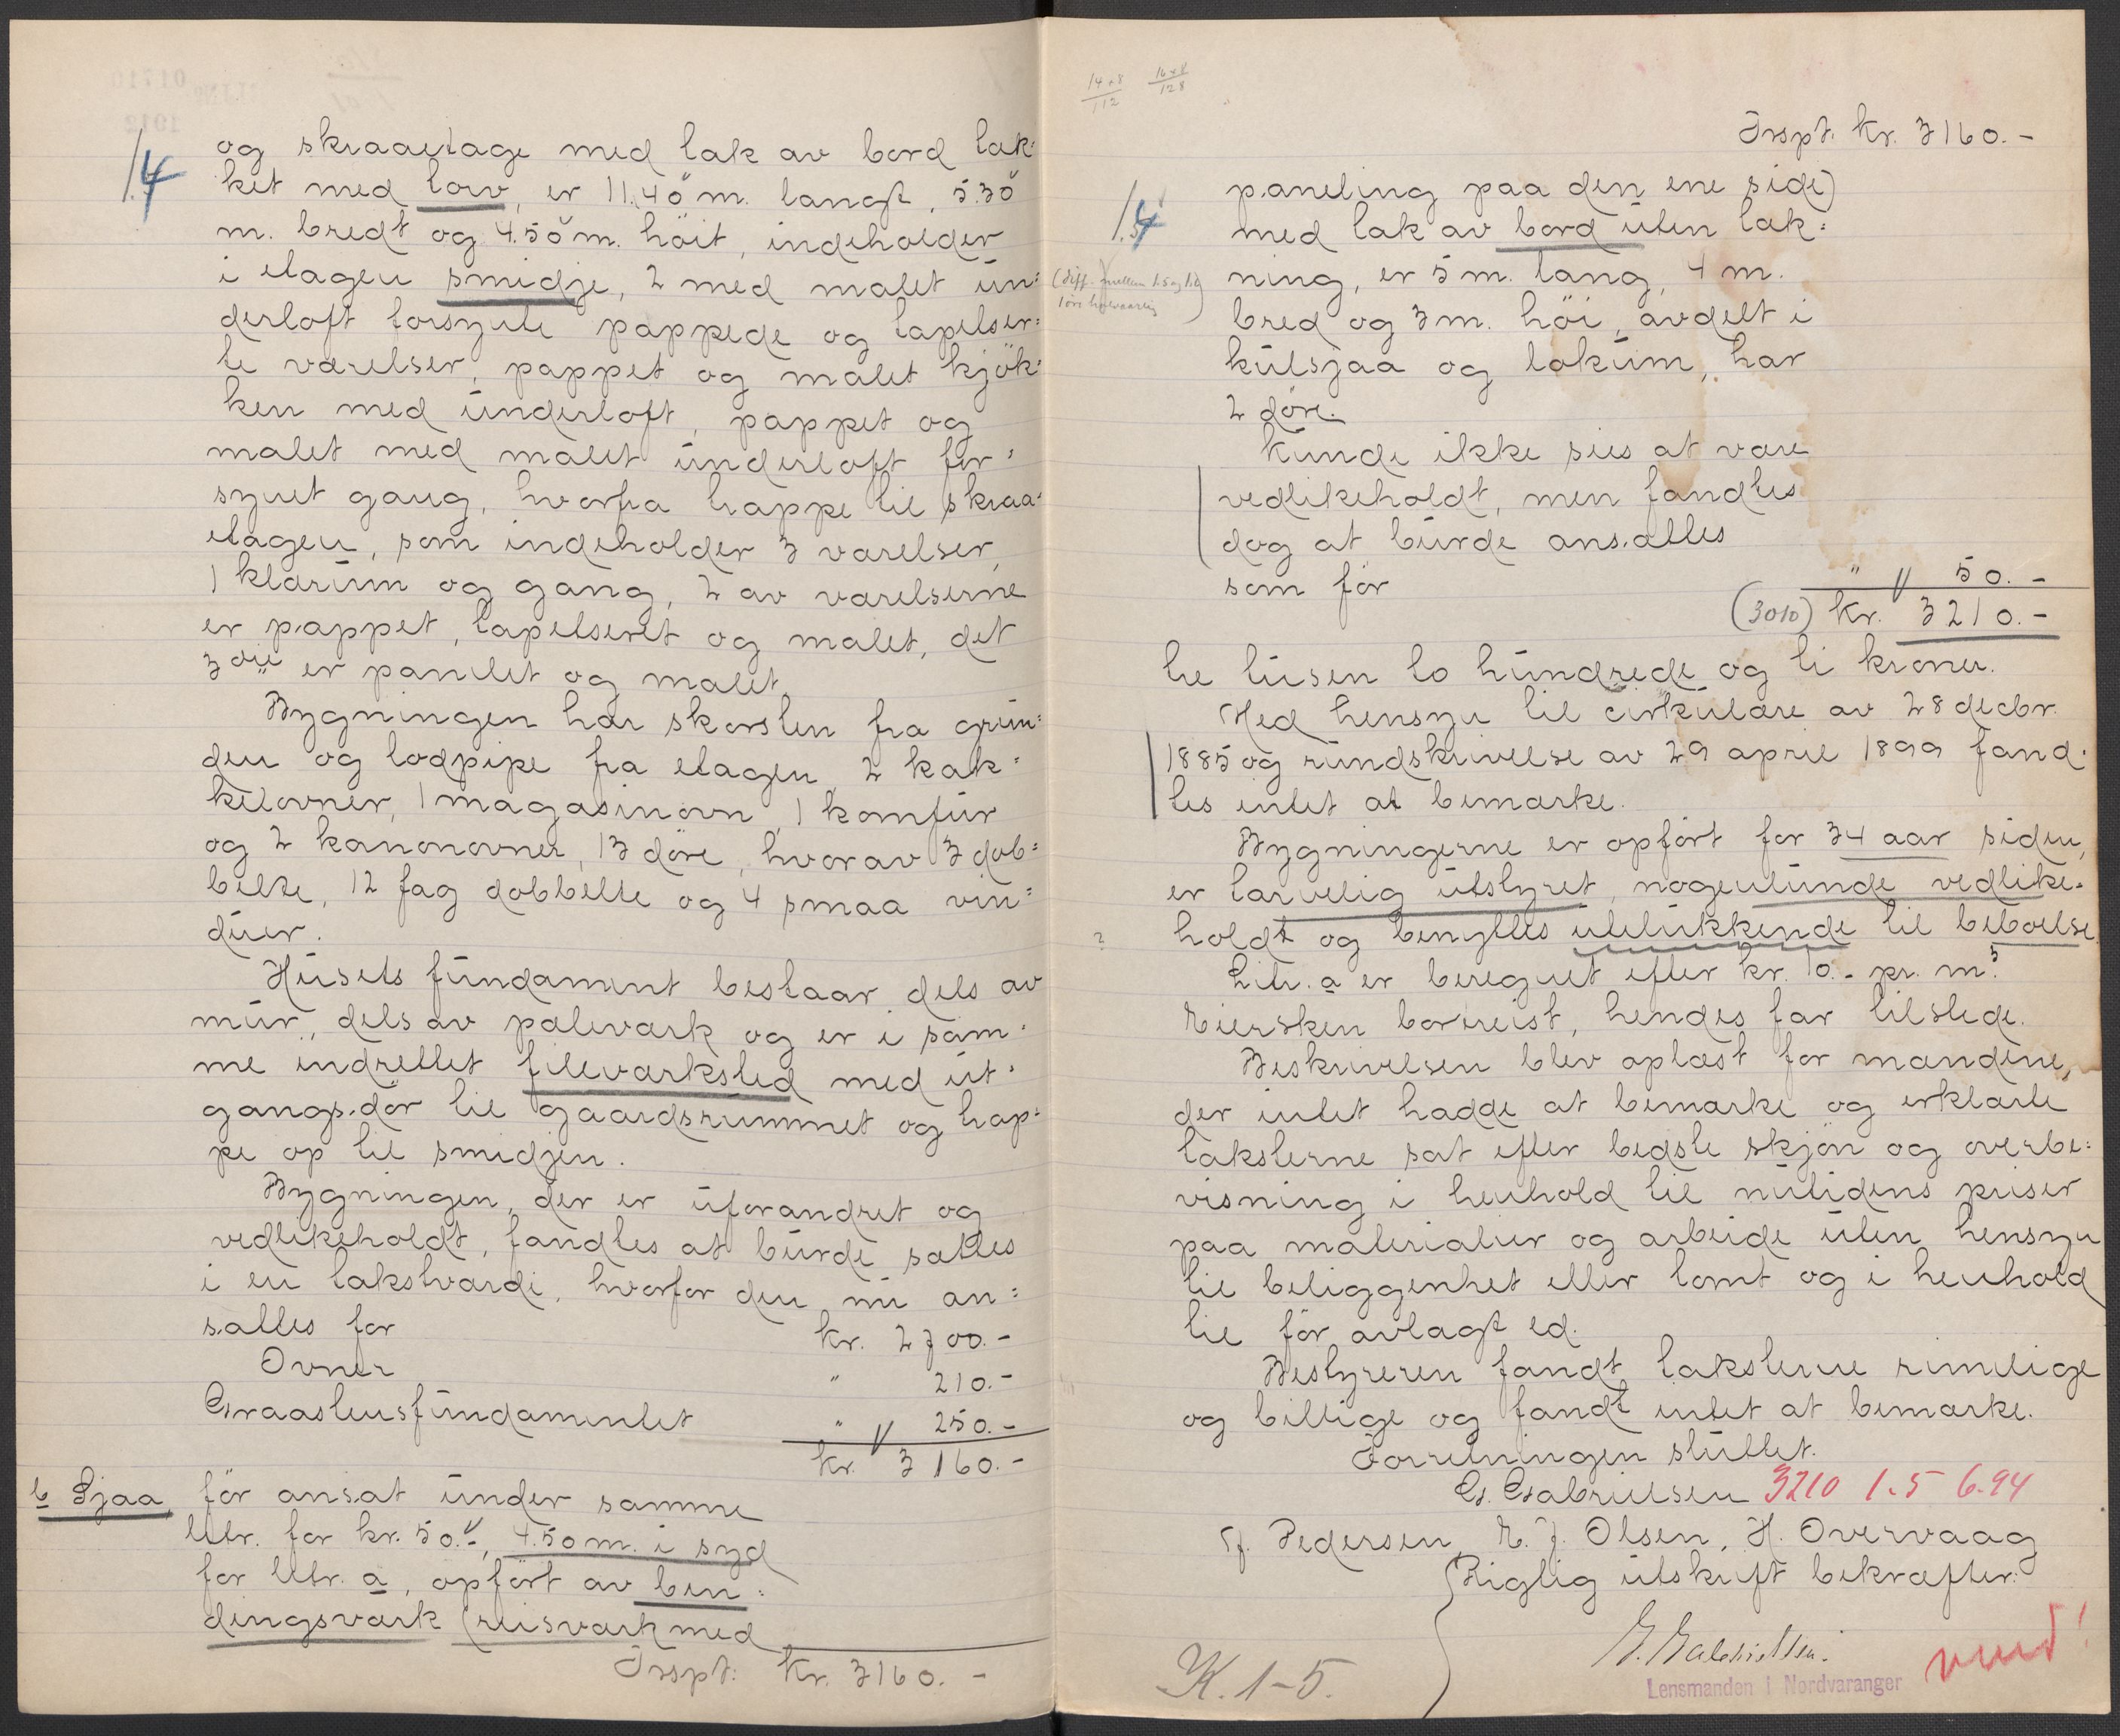 1.4
og skraaetage med tak av bord tæk=
ket med torv, er 11.40 m. langt, 5.30
m. bredt og 4.50 m. höit, indeholder
i etagen smidje, 2 med malet un=
derloft forsynte pappede og tapetser=
te værelser, pappet og malet kjök=
ken med underloft, pappet og
malet med malet underloft for=
synet gang, hvorfra trappe til skraa=
etagen, som indeholder 3 værelser,
1 klærum og gang, 2 av værelserne
er pappet, tapetseret og malet, det
3die er panelet og malet
Bygningen har skorsten fra grun=
den og lodpipe fra etagen, 2 kak=
kelovner, 1 magasinovn, 1 komfur
og 2 kanonovner, 13 döre, hvorav 3 dob=
belte, 12 fag dobbelte og 4 smaa vin=
duer.
Husets fundament bestaar dels av
mur, dels av pæleverk og er i sam=
me indrettet fileverksted med ut=
gangsdör til gaardsrummet og trap=
pe op til smidjen.
Bygningen, der er uforandret og
vedlikeholdt, fandtes at burde sættes
i en takstværdi, hvorfor den nu an=
sættes for kr. 2700.-
Ovner " 210.-
Graastensfundamentet " 250.-
kr. 3160.-
b Sjaa, för ansat under samme
litr. for kr. 50.-, 4.50 m. i syd
for litr. a, opfört av bin=
dingsverk (reisverk med
Trspt. kr. 3160.-
14×8
112
16×8
128
Trspt. kr. 3160.-
1.4
paneling paa den ene side)
med tak av bord uten tæk=
ning, er 5 m. lang, 4 m.
(diff. mellem 1.5 og 1.4
bred og 3 m. höi, avdelt i
kulsjaa og lokum, har
2 döre.
Kunde ikke sies at være
vedlikeholdt, men fandtes
dog at burde ansættes
som för " 50.-
(3010) kr. 3210.-
tre tusen to hundrede og ti kroner.
Med hensyn til cirkulære av 28 decbr.
1885 og rundskrivelse av 29 april 1899 fand=
tes intet at bemærke.
Bygningerne er opfört for 34 aar siden,
er tarvelig utstyret, nogenlunde vedlike=
? holdt og benyttes utelukkende til beboelse.
Litr. a er beregnet efter kr. 10.- pr. m³.
Eiersken bortreist, hendes far tilstede.
Beskrivelsen blev oplæst for mændene,
der intet hadde at bemærke og erklærte
taksterne sat efter bedste skjön og overbe=
visning i henhold til nutidens priser
paa materialier og arbeide uten hensyn
til beliggenhet eller tomt og i henhold
til för avlagt ed.
Bestyreren fandt taksterne rimelige
og billige og fandt intet at bemærke.
Forretningen sluttet.
G. Gabrielsen 3210 1.5 6.94
J. Pedersen, E. J. Olsen, H. Overvaag
Rigtig utskrift bekræfter:
G. Gabrielsen.
Lensmanden i Nordvaranger
K. 1-5.